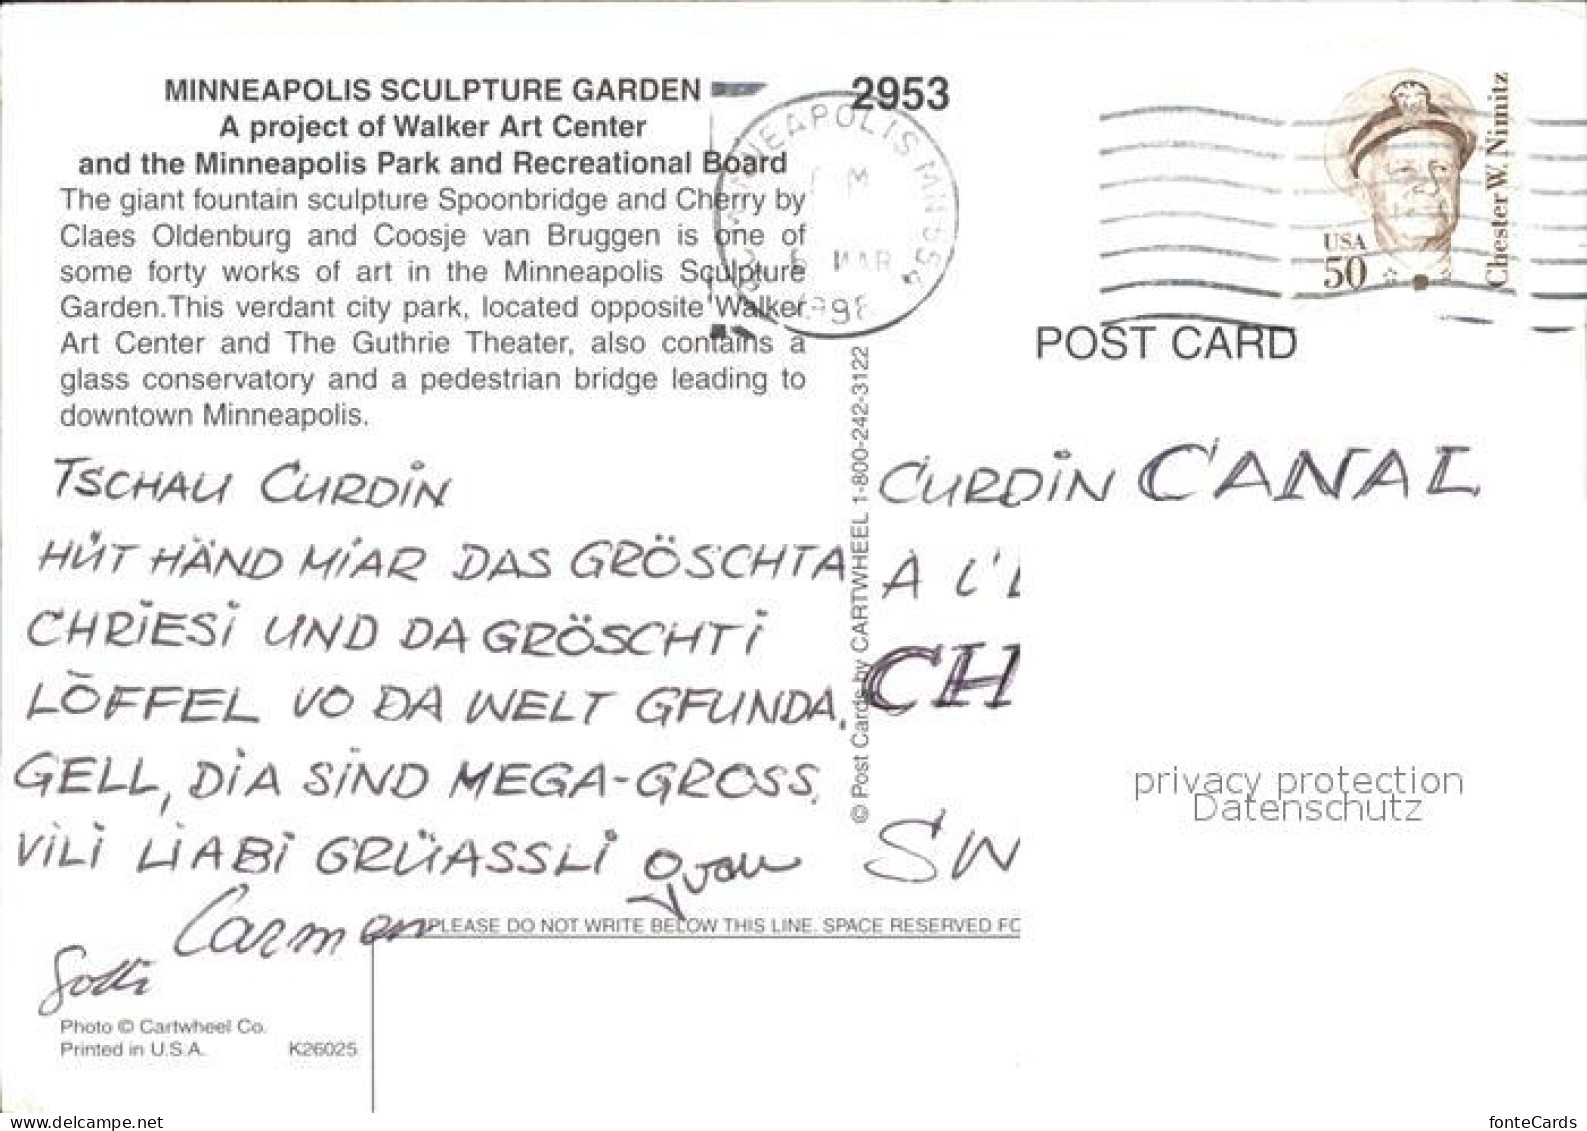 MINNEAPOLIS SCULPTURE GARDEN
A project of Walker Art Center
and the Minneapolis Park and Recreational Board
The giant fountain sculpture Spoonbridge and Cherry by
Claes Oldenburg and Coosje van Bruggen is one of
some forty works of art in the Minneapolis Sculpture
Garden.This verdant city park, located opposite Walker
Art Center and The Guthrie Theater, also contains a
glass conservatory and a pedestrian bridge leading to
downtown Minneapolis.
TSCHAU CURDIN
HÜT HÄND MIAR DAS GRÖSCHTA
CHRIESI UND DA GRÖSCHTI
LÖFFEL VO DA WELT GFUNDA.
GELL, DIA SIND MEGA-GROSS.
VILI LIABI GRÜASSLI
Carmen
Gotti
Photo © Cartwheel Co.
Printed in U.S.A. K26025
PLEASE DO NOT WRITE BELOW THIS LINE. SPACE RESERVED FO
© Post Cards by CARTWHEEL 1-800-242-3122
2953
MINNEAPOLIS MN 554
MAR
USA
50
Chester W. Nimitz
POST CARD
CURDIN CANAL
A L'
CH
SW
privacy protection
Datenschutz
www.delcampe.net
fonteCards